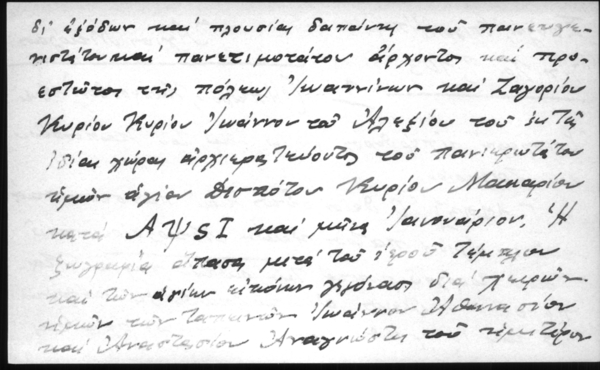 δι' ἐξόδων καὶ πλουσίας δαπάνης τοῦ πανευγε-
νεστάτου καὶ πανεντιμοτάτου ἄρχοντος καὶ προ-
εστῶτος τῆς πόλεως Ἰωαννίνων καὶ Ζαγορίου
Κυρίου Κυρίου Ἰωάννου τοῦ Ἀλεξίου τοῦ ἐκ τῆς
ἰδίας χώρας ἀρχιερατεύοντος τοῦ πανιερωτάτου
ἡμῶν ἁγίου Δεσπότου Κυρίου Μακαρίου
κατὰ ΑΨSΙ καὶ μῆνα Ἰανουάριον. Ἡ
ζωγραφία ἅπασα μετὰ τοῦ ἱεροῦ Τέμπλου
καὶ τῶν ἁγίων εἰκόνων γέγονασι διὰ χειρῶν
ἡμῶν τῶν ταπεινῶν Ἰωάννου Ἀθανασίου
καὶ Ἀναστασίου Ἀναγνώστη τοῦ ἡμετέρου